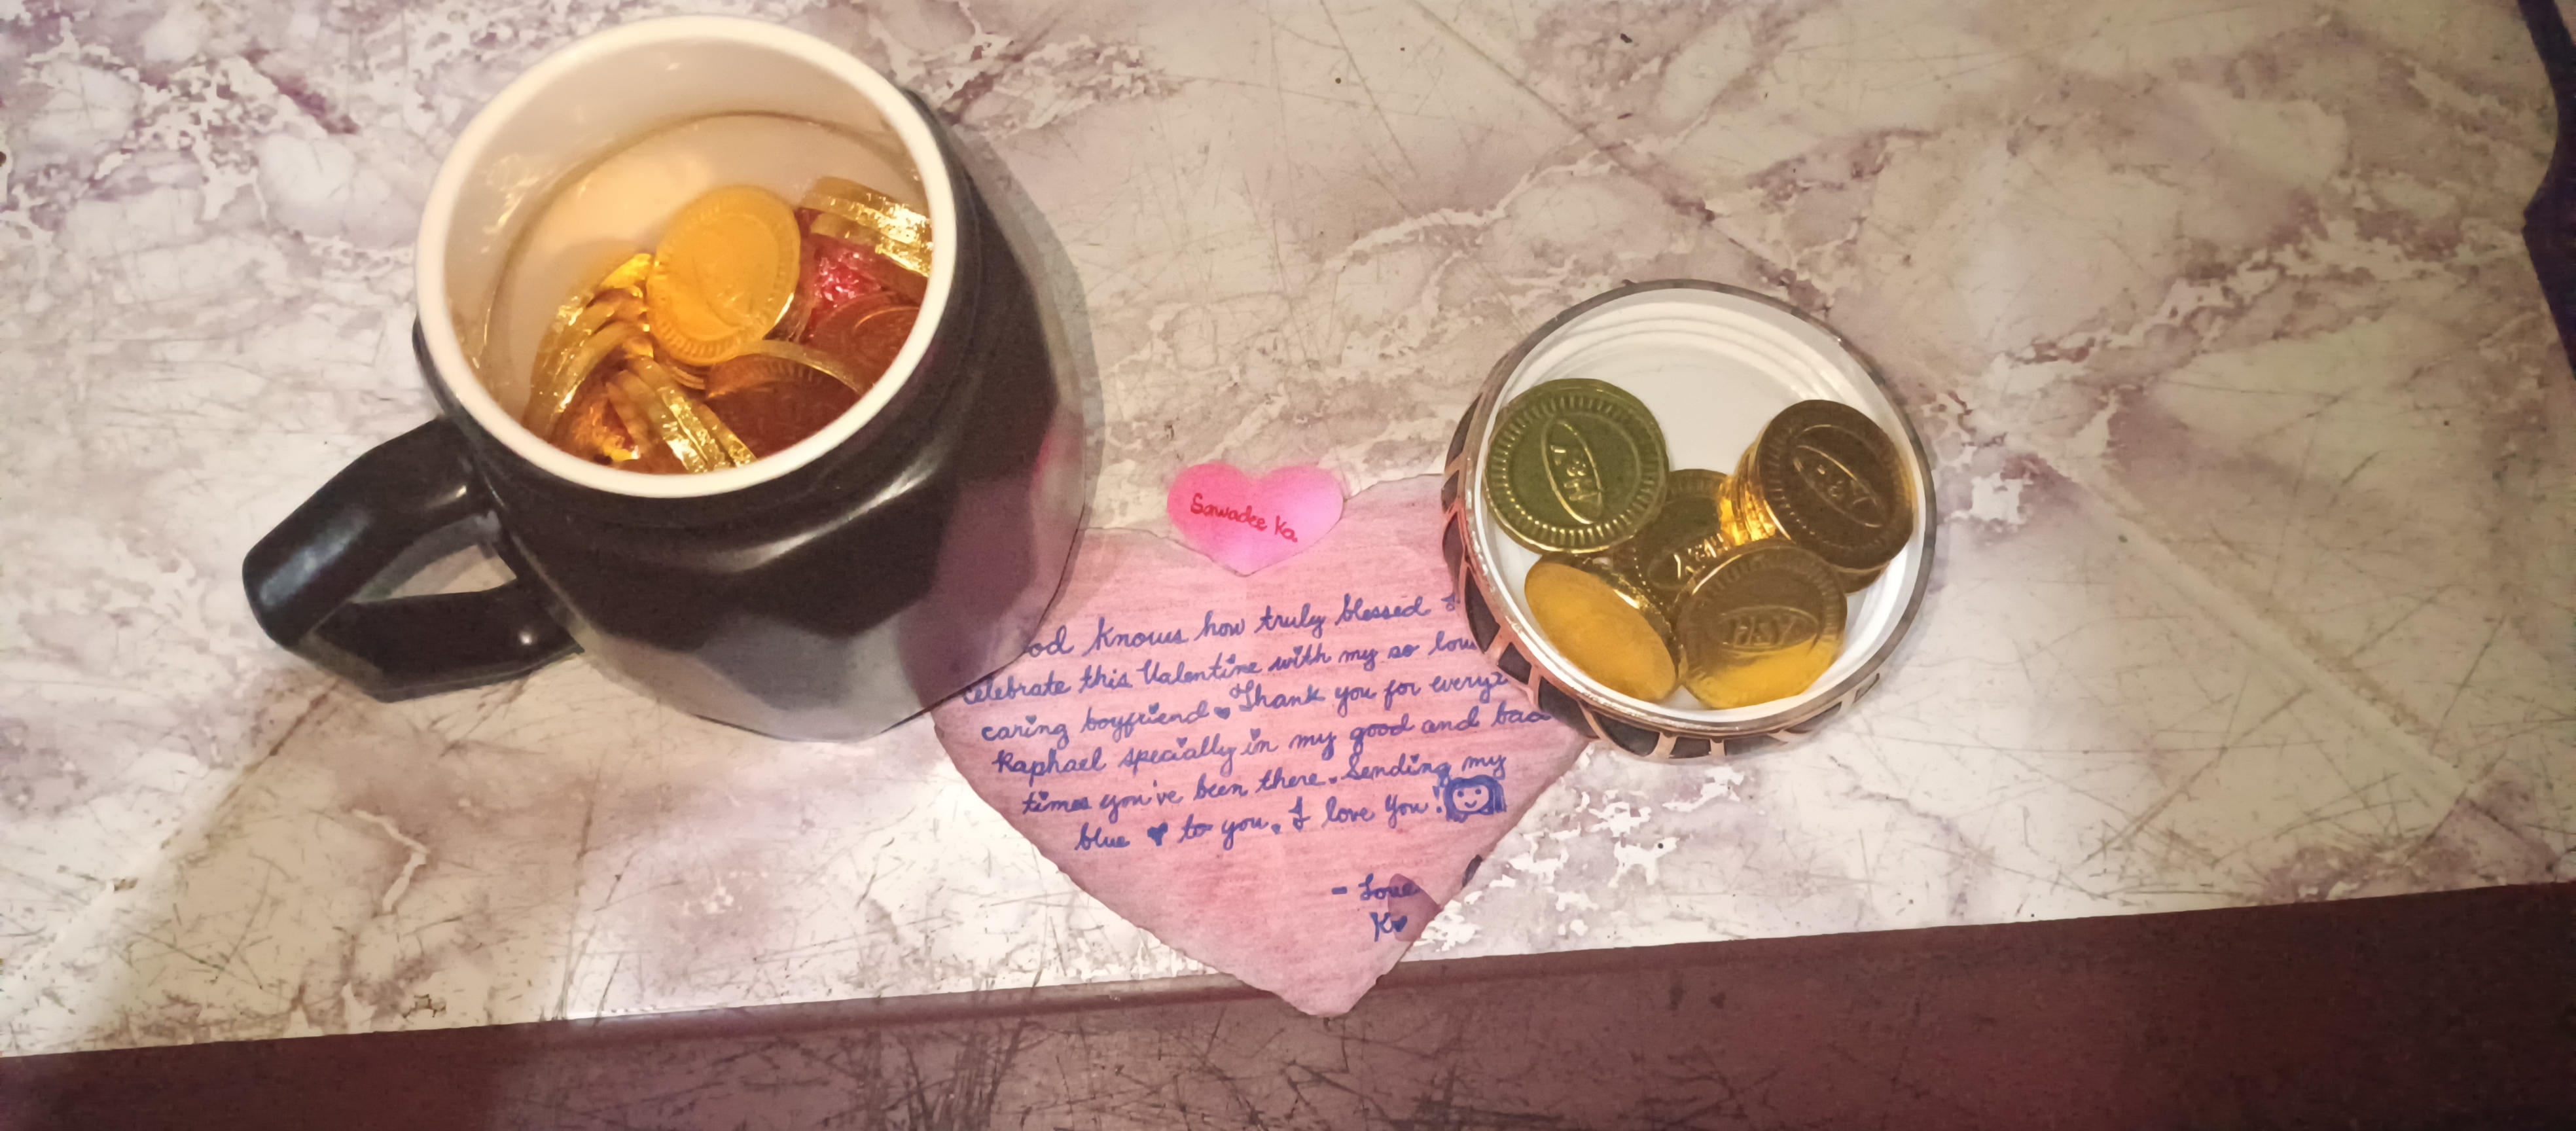 Sawadee Ka
od knows how truly blessed I
celebrate this Valentine with my so lov
caring boyfriend Thank you for every
Raphael specially in my good and bad
times you've been there. Sending my
blue to you. I love you!
- Love
K